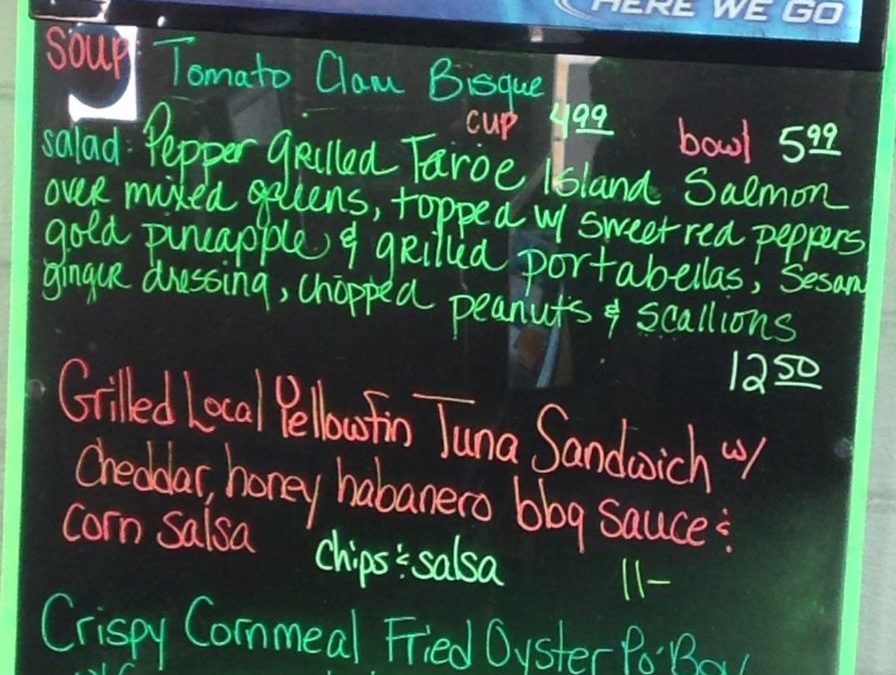 HERE WE GO
soup Tomato Clam Bisque
cup 4.99 bowl 5.99
salad: Pepper Grilled Taroe Island Salmon
over mixed greens, topped w/ sweet red peppers
gold pineapple & grilled portabellas, Sesam
ginger dressing, chopped peanuts & scallions
12 50
Grilled Local Yellowfin Tuna Sandwich w/
Cheddar, honey habanero bbq sauce &
corn salsa
chips & salsa 11-
Crispy Cornmeal Fried Oyster Po'Boy